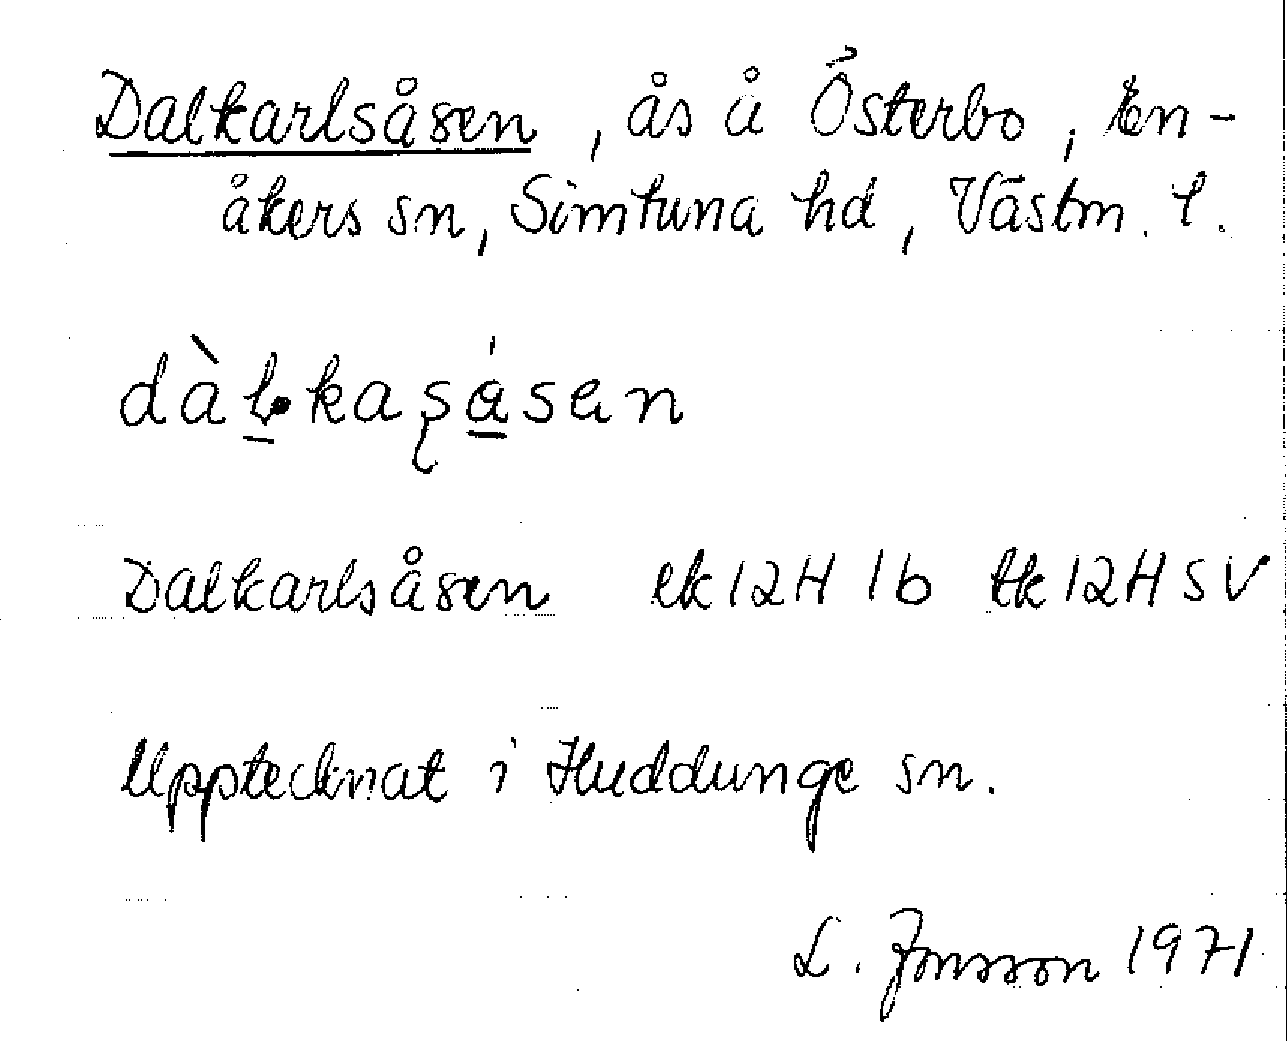 Dalkarlsåsen, ås å Österbo, En-
åkers sn, Simtuna hd, Västm. l.
dàḷ·kaʂásen
Dalkarlsåsen ek 12H 1b tk 12H SV
Upptecknat i Huddunge sn.
L. Jonsson 1971